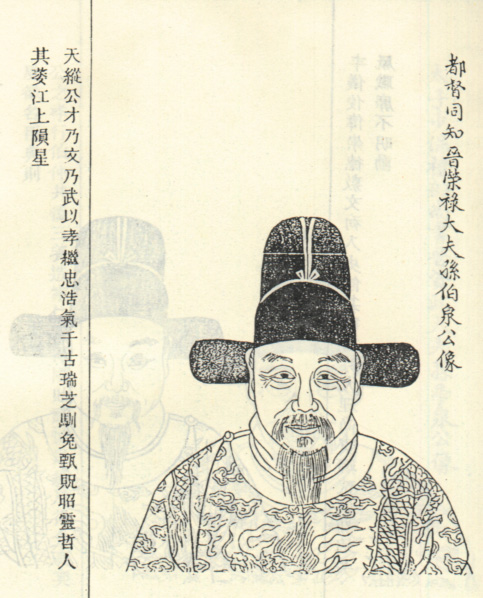 都督同知晉榮祿大夫孫伯泉公像
天縱公才乃文乃武以孝繼忠浩氣千古瑞芝馴兔甄貺昭靈哲人
其萎江上隕星